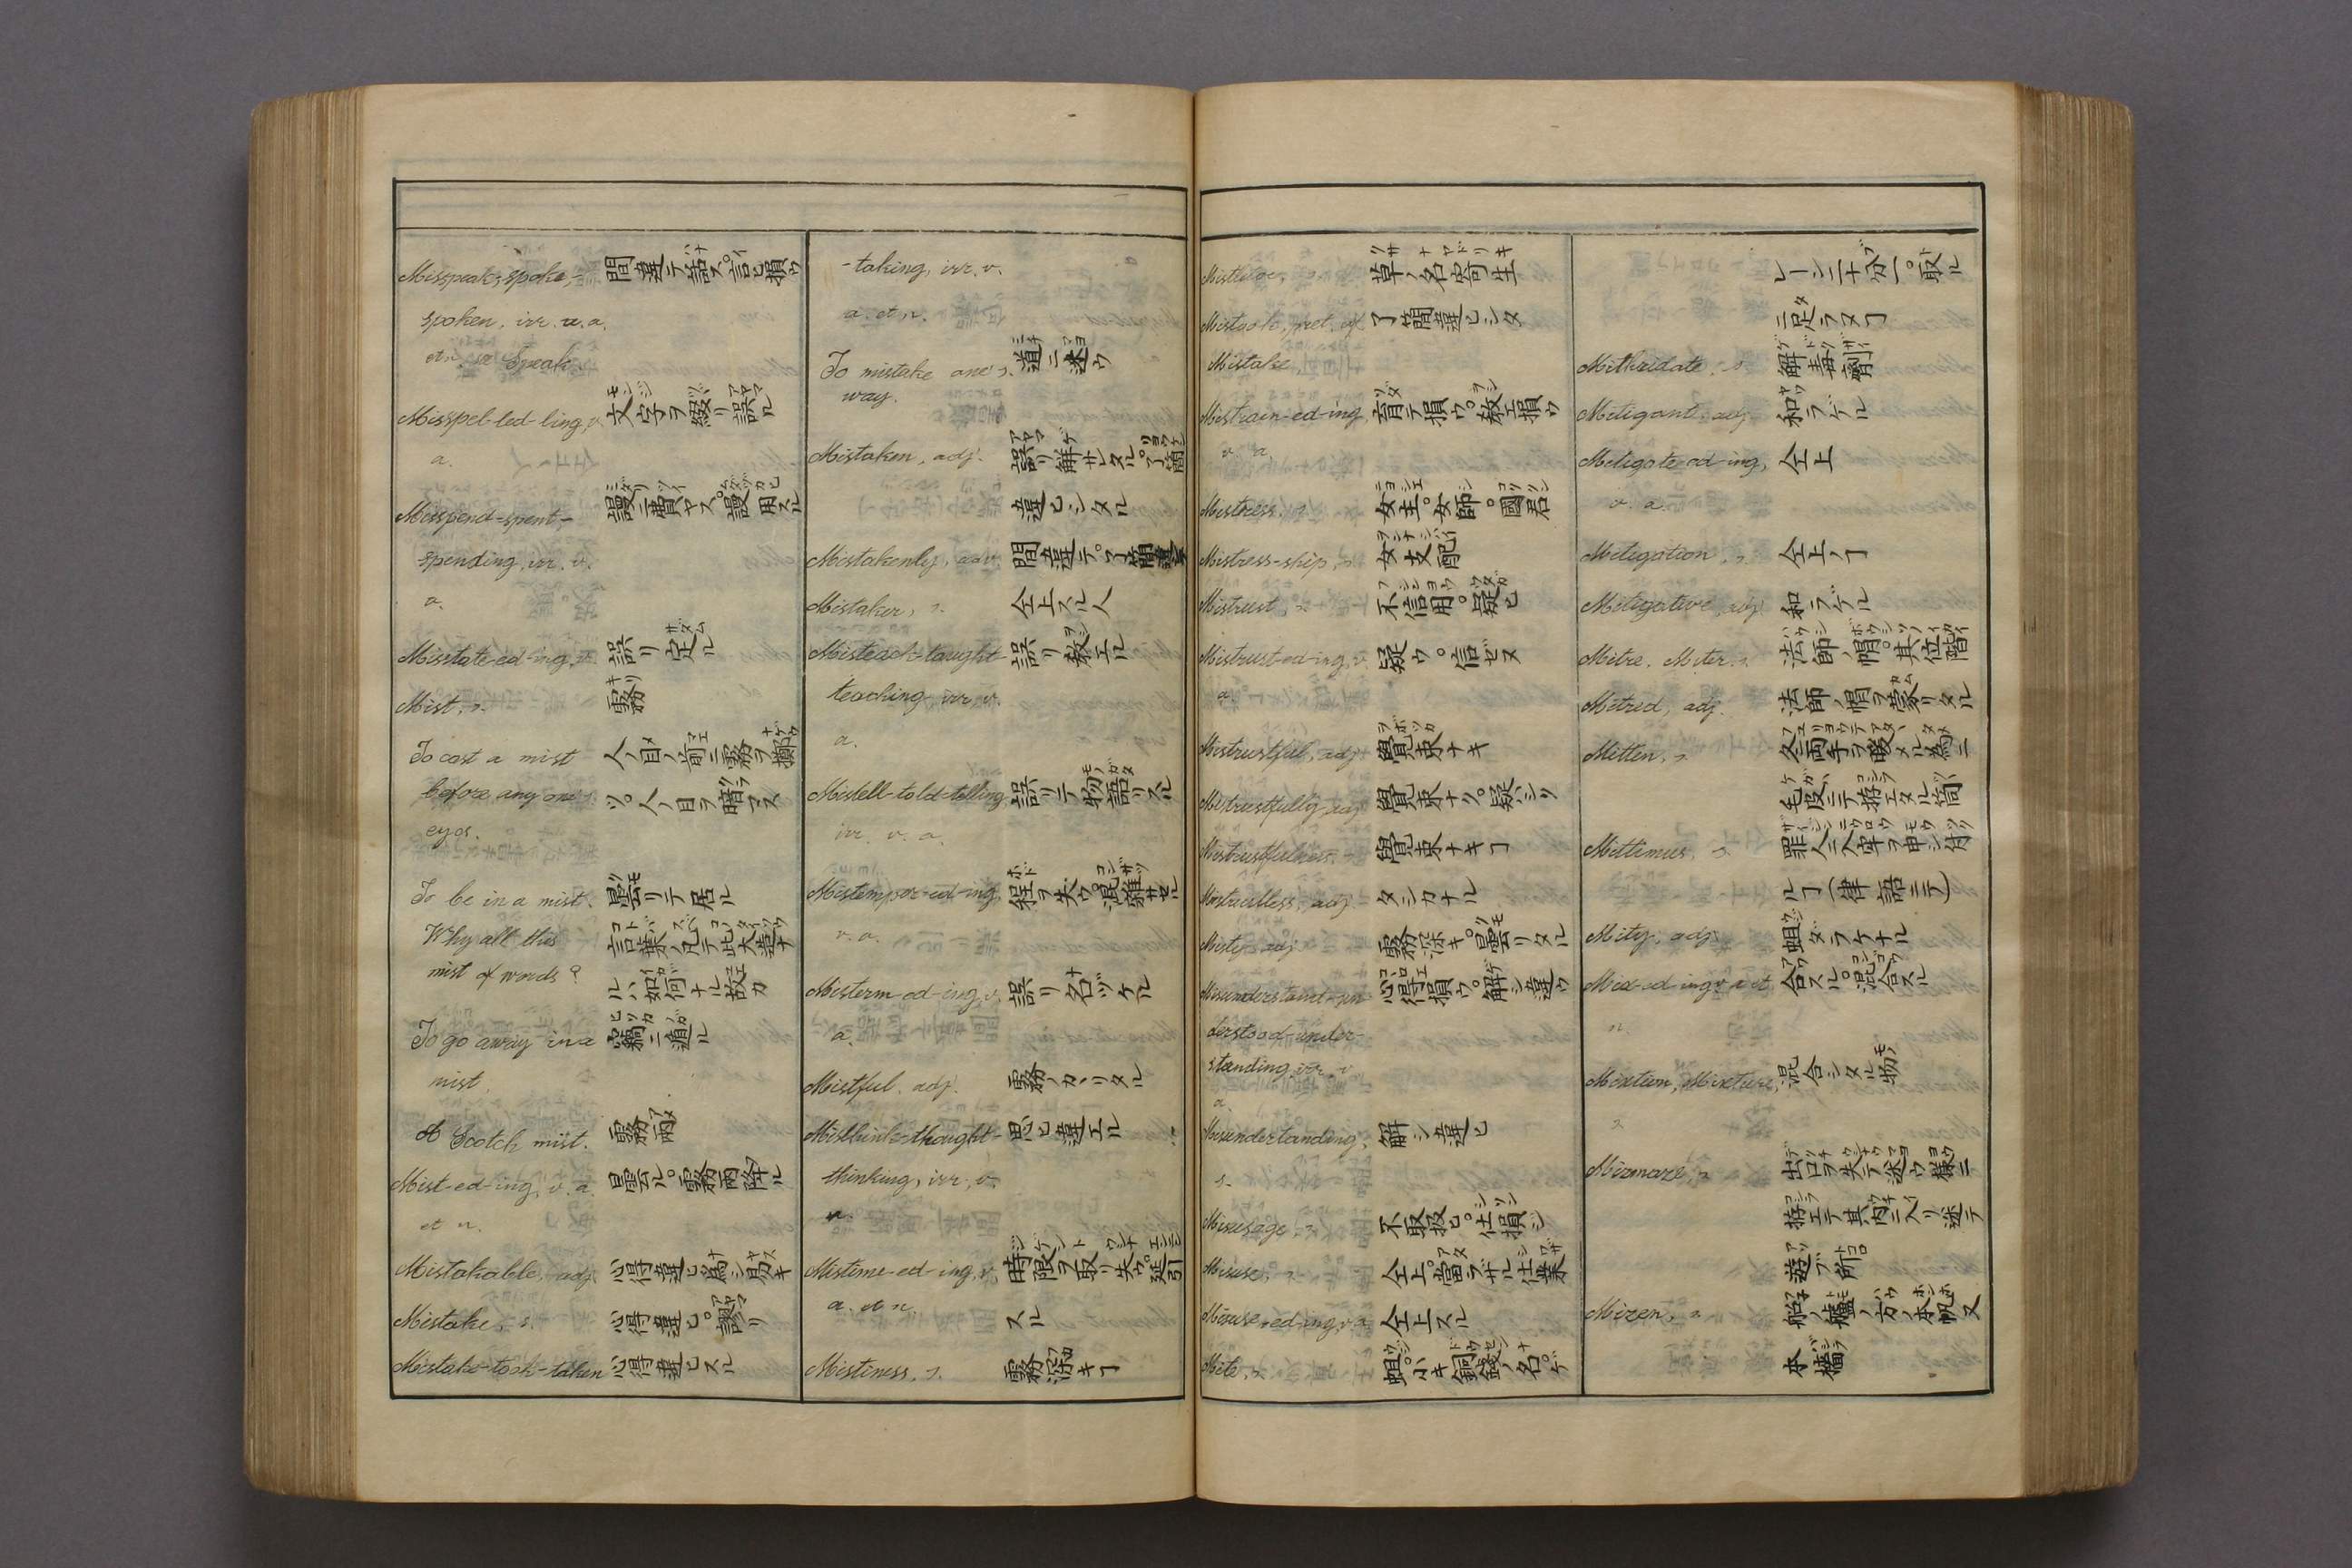 Misspeak-spoke- 間違テ話ス。言ヒ損ウ
spoken. irr. v.a.
et n. se Speak.
Misspel-led-ling, v. 文字ヲ綴リ誤ル
a.
Misspend-spent- 謾ニ費ヤス。謾用スル
spending, irr. v.
a.
Misstate-ed-ing, v. 誤リ定ル
Mist, s. 霧
To cast a mist 人ノ目ノ前ニ霧ヲ擲
before any one's ツ。人ノ目ヲ暗マス
eyes.
To be in a mist. 曇リテ居ル
Why all this 言葉ノ凡テ此大造ナ
mist of words? ルハ如何ナル故カ
To go away in a 竊ニ遁ル
mist.
A Scotch mist. 霧雨
Mist-ed-ing, v. a. 曇ル。霧雨降ル
et n.
Mistakable, adj. 心得違ヒ為シ易キ
Mistake, s. 心得違ヒ。謬リ
Mistake-took-taken 心得違ヒスル
-taking, irr. v.
a. et n.
To mistake one's 道ニ迷ウ
way.
Mistaken, adj. 誤リ解サレタル。了簡
違ヒシタル
Mistakenly, adv. 間違テ。了簡違テ
Mistaker, s. 仝上スル人
Misteach-taught- 誤リ教エル
teaching, irr. v.
a.
Mistell-told-telling, 誤リテ物語リスル
irr. v. a.
Mistemper-ed-ing, 程ヲ失ウ。混雜サセル
v. a.
Misterm-ed-ing, v. 誤リ名ツケル
a.
Mistful. adj. 霧ノカヽリタル
Misthink-thought- 思ヒ違エル
thinking, irr. v.
n.
Mistime-ed-ing, v. 時限ヲ取リ失ウ。延引
a. et n. スル
Mistiness, s. 霧深キヿ
Mistletoe, s. 草ノ名寄生
Mistook, pret. of 了簡違ヒシタ
Mistake.
Mistrain-ed-ing, 育テ損ウ。教エ損ウ
v. a.
Mistress. s. 女主。女師。國君
Mistress-ship, s. 女支配
Mistrust, s. 不信用。疑ヒ
Mistrust-ed-ing, v. 疑ウ。信ゼヌ
a.
Mistrustful, adj. 覺束ナキ
Mistrustfully, adj. 覺束ナク。疑ハシク
Mistrustfulness. 覺束ナキヿ
Mistrustless, adj. タシカナル
Misty, adj. 霧深キ。曇リタル
Misunderstand-un- 心得損ウ。解シ違ウ
derstood-under-
standing, irr. v.
a.
Misundertanding, 解シ違ヒ
s.
Misusage, s. 不取扱ヒ。仕損ジ
Misuse, s. 仝上。當ラザル仕業
Misuse-ed-ing, v. a. 仝上スル
Mite, s. 蛆。小キ銅錢ノ名。ゲ
レーン二十分一。取ル
ニ足ラヌヿ
Mithridate, s. 解毒劑
Mitigant, adj. 和ラゲル
Mitigate-ed-ing, 仝上
v. a.
Mitigation, s. 仝上ノヿ
Mitigative, adj. 和ラゲル
Mitre, Miter. s. 法師ノ帽。其位階
Mitred, adj. 法師ノ帽ヲ蒙リタル
Mitten, s. 冬両手ヲ暖メル為ニ
毛皮ニテ拵エタル筒
Mittimus, s. 罪人ニ入牢ヲ申シ付
ルヿ(律語ニテ)
Mity, adj. 蛆ダラケナル
Mix-ed-ing, v. a. et 合スル。混合スル
n.
Mixtion, Mixture, 混合シタル物
s.
Mizmaze, s. 出口ヲ失テ迷ウ様ニ
拵エテ其内ニ入リ迷テ
遊ブ所
Mizen, s. 船ノ艫ノ方ノ本帆又
本檣